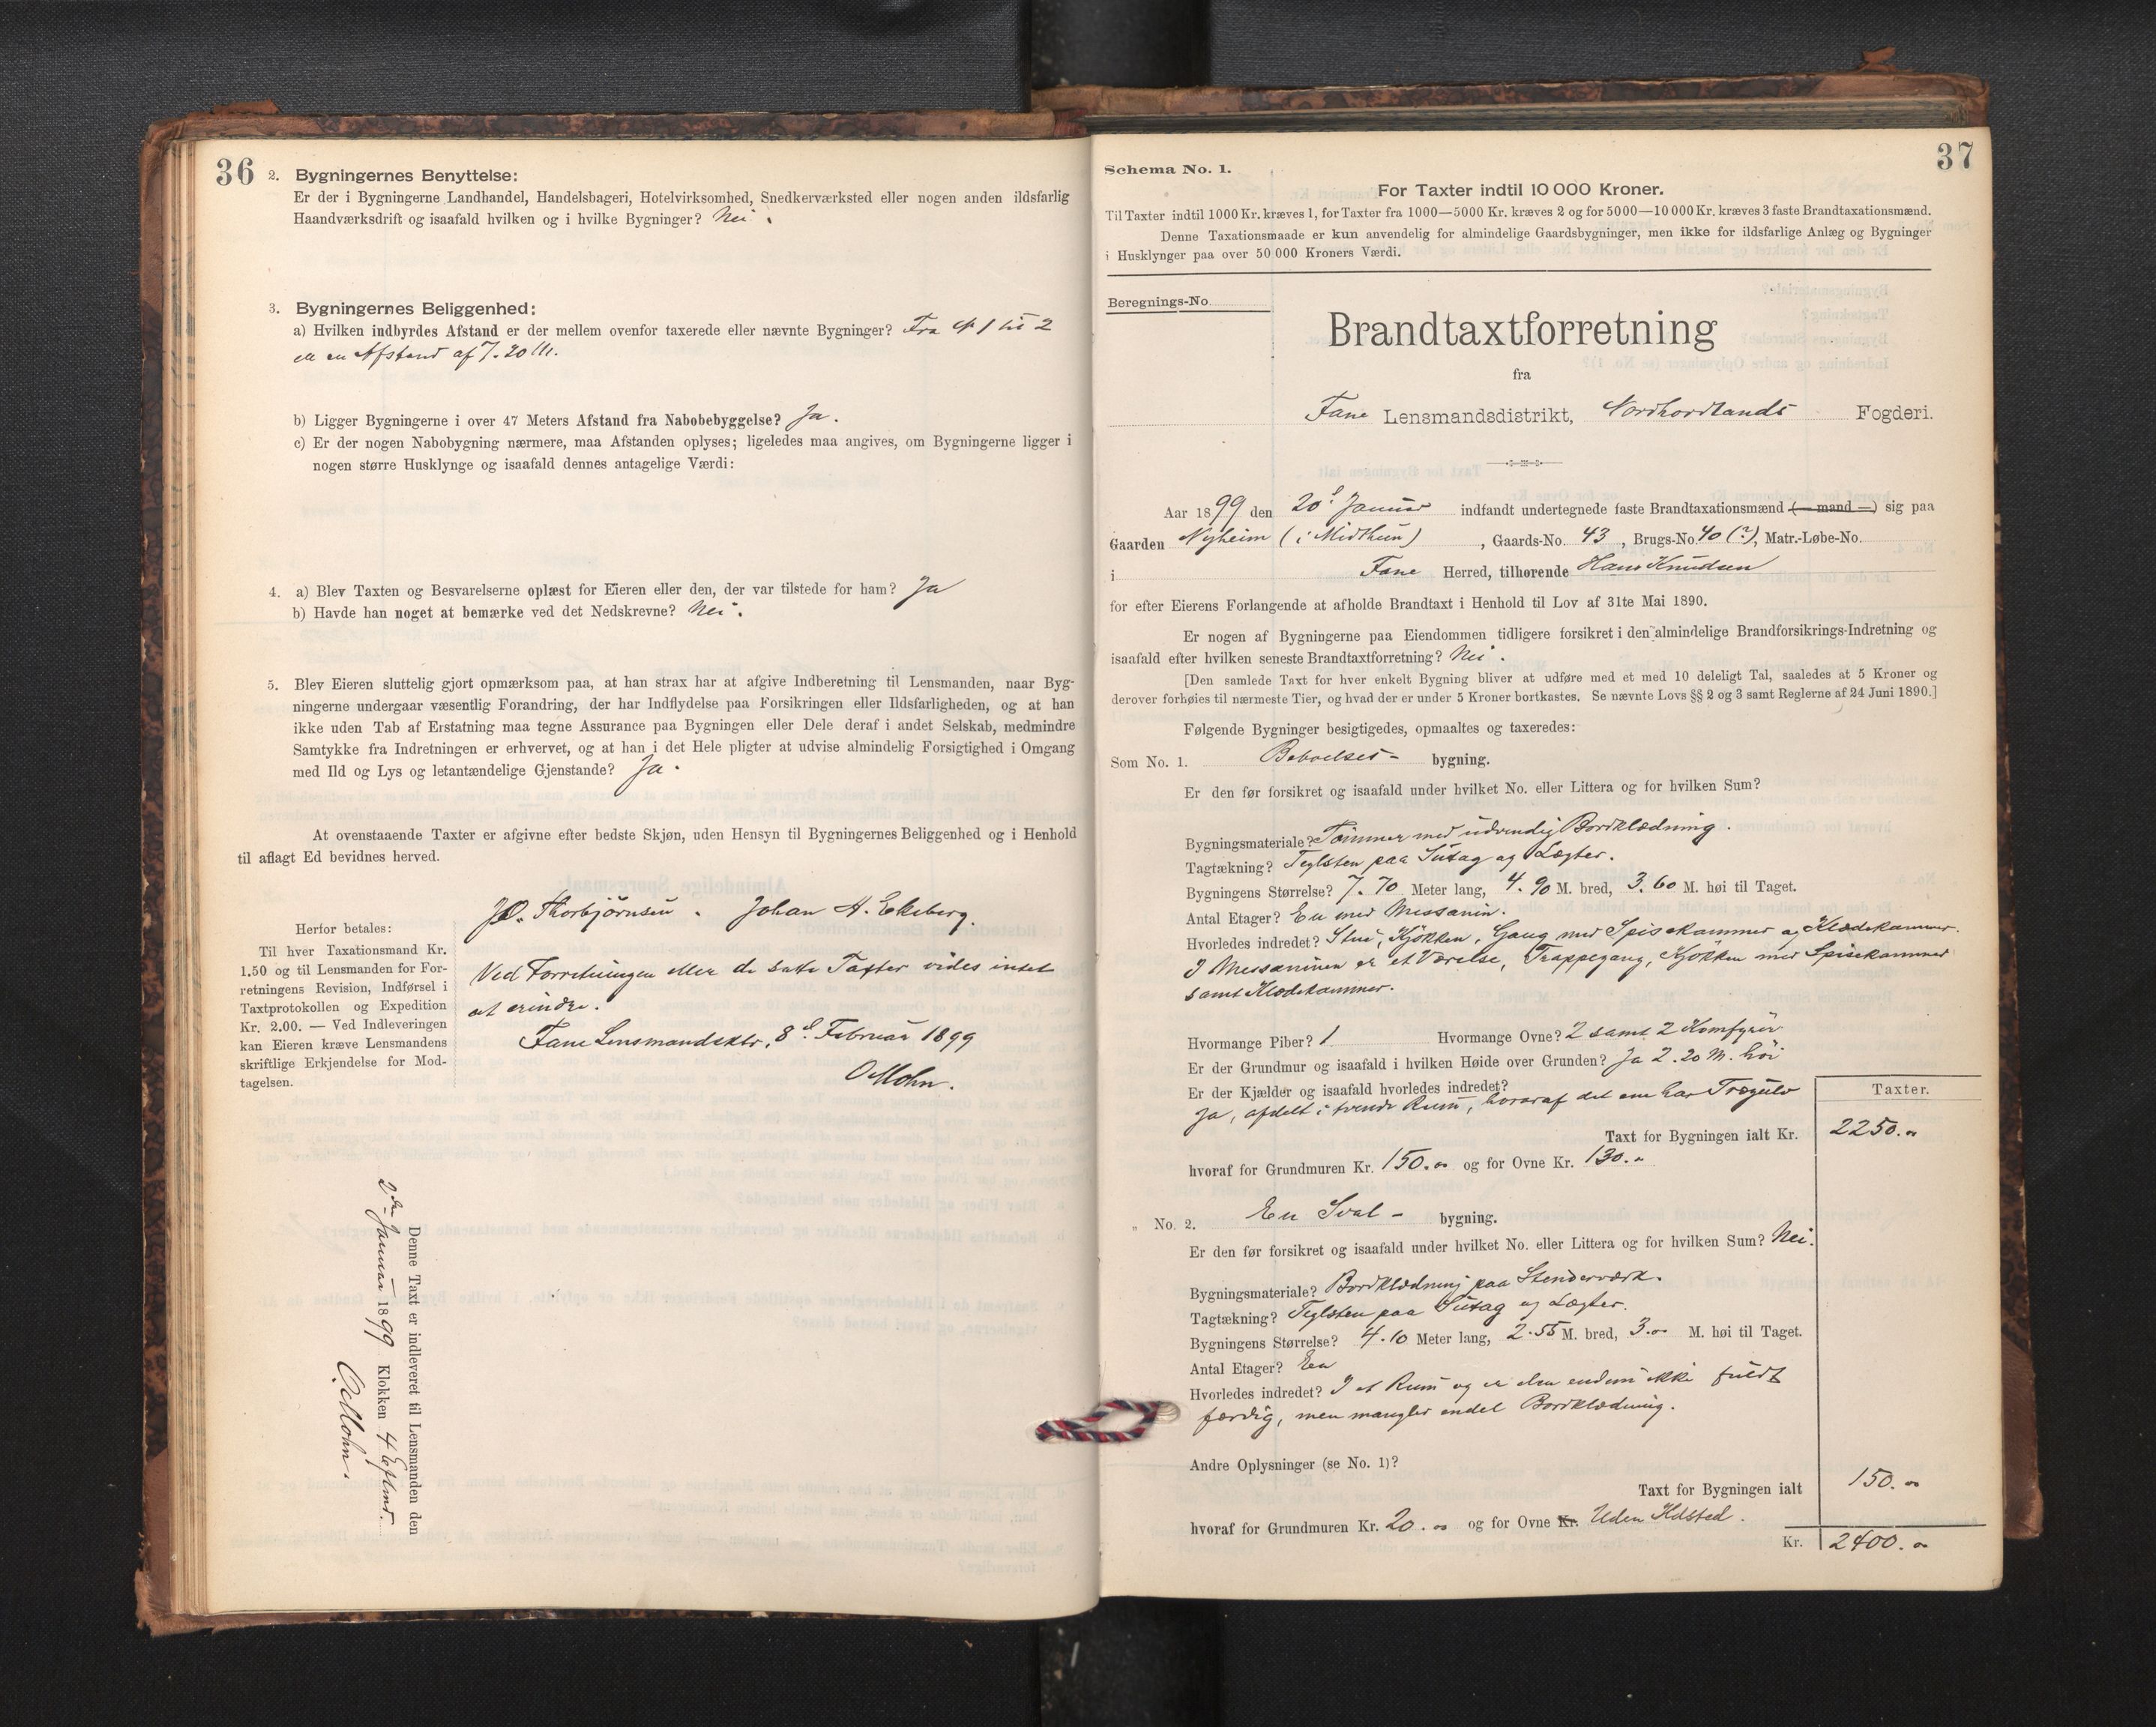 36
2. Bygningernes Benyttelse:
Er der i Bygningerne Landhandel, Handelsbageri, Hotelvirksomhed, Snedkerværksted eller nogen anden ildsfarlig
Haandværksdrift og isaafald hvilken og i hvilke Bygninger? Nei.
3. Bygningernes Beliggenhed:
a) Hvilken indbyrdes Afstand er der mellem ovenfor taxerede eller nævnte Bygninger? Fra № 1 til 2
er en Afstand af 7.20 M.
b) Ligger Bygningerne i over 47 Meters Afstand fra Nabobebyggelse? Ja.
c) Er der nogen Nabobygning nærmere, maa Afstanden oplyses; ligeledes maa angives, om Bygningerne ligger i
nogen større Husklynge og isaafald dennes antagelige Værdi:
4. a) Blev Taxten og Besvarelserne oplæst for Eieren eller den, der var tilstede for ham? Ja
b) Havde han noget at bemærke ved det Nedskrevne? Nei.
5. Blev Eieren sluttelig gjort opmærksom paa, at han strax har at afgive Indberetning til Lensmanden, naar Byg-
ningerne undergaar væsentlig Forandring, der har Indflydelse paa Forsikringen eller Ildsfarligheden, og at han
ikke uden Tab af Erstatning maa tegne Assurance paa Bygningen eller Dele deraf i andet Selskab, medmindre
Samtykke fra Indretningen er erhvervet, og at han i det Hele pligter at udvise almindelig Forsigtighed i Omgang
med Ild og Lys og letantændelige Gjenstande? Ja.
At ovenstaaende Taxter er afgivne efter bedste Skjøn, uden Hensyn til Bygningernes Beliggenhed og i Henhold
til aflagt Ed bevidnes herved.
J. O. Thorbjørnsen. Johan A. Ekeberg.
Herfor betales:
Til hver Taxationsmand Kr.
1.50 og til Lensmanden for For-
retningens Revision, Indførsel i
Taxtprotokollen og Expedition
Kr. 2.00. — Ved Indleveringen
kan Eieren kræve Lensmandens
skriftlige Erkjendelse for Mod-
tagelsen.
Ved Forretningen eller de satte Taxter vides intet
at erindre.
Fane Lensmandsktr, 8d. Februar 1899
O Mohn.
Denne Taxt er indleveret til Lensmanden den
2den Januar 1899 Klokken 4 Eftmd.
O. Mohn.
37
Schema No. 1.
For Taxter indtil 10 000 Kroner.
Til Taxter indtil 1000 Kr. kræves 1, for Taxter fra 1000—5000 Kr. kræves 2 og for 5000—10 000 Kr. kræves 3 faste Brandtaxationsmænd.
Denne Taxationsmaade er kun anvendelig for almindelige Gaardsbygninger, men ikke for ildsfarlige Anlæg og Bygninger
i Husklynger paa over 50 000 Kroners Værdi.
Beregnings-No.
Brandtaxtforretning
fra
Fane Lensmandsdistrikt, Nordhordlands Fogderi.
Aar 1899 den 20d. Januar indfandt undertegnede faste Brandtaxationsmænd (— mand —) sig paa
Gaarden Nyheim (i Midthun), Gaards-No. 43, Brugs-No. 40 (?), Matr.-Løbe-No.
i Fane Herred, tilhørende Hans Knudsen
for efter Eierens Forlangende at afholde Brandtaxt i Henhold til Lov af 31te Mai 1890.
Er nogen af Bygningerne paa Eiendommen tidligere forsikret i den almindelige Brandforsikrings-Indretning og
isaafald efter hvilken seneste Brandtaxtforretning? Nei.
[Den samlede Taxt for hver enkelt Bygning bliver at udføre med et med 10 deleligt Tal, saaledes at 5 Kroner og
derover forhøies til nærmeste Tier, og hvad der er under 5 Kroner bortkastes. Se nævnte Lovs §§ 2 og 3 samt Reglerne af 24 Juni 1890.]
Følgende Bygninger besigtigedes, opmaaltes og taxeredes:
Som No. 1. Beboelses- bygning.
Er den før forsikret og isaafald under hvilket No. eller Littera og for hvilken Sum?
Bygningsmateriale? Tømmer med udvendig Bordklædning.
Tagtækning? Teglsten paa Sutag og Lægter.
Bygningens Størrelse? 7.70 Meter lang, 4.90 M. bred, 3.60 M. høi til Taget.
Antal Etager? En med Messanin.
Hvorledes indredet? Stue, Kjøkken, Gang med Spisekammer og Klædekammer.
I Messaninen er et Værelse, Trappegang, Kjøkken med Spisekammer
samt Klædekammer.
Hvormange Piber? 1 Hvormange Ovne? 2 samt 2 Komfyrer
Er der Grundmur og isaafald i hvilken Høide over Grunden? Ja 2.20 M. høi
Er der Kjælder og isaafald hvorledes indredet?
Ja, afdelt i tvende Rum, hvoraf det ene har Trægulv
Taxter.
Taxt for Bygningen ialt Kr. 2250.00
hvoraf for Grundmuren Kr. 150.00 og for Ovne Kr. 130.00
„ No. 2. En Sval- bygning.
Er den før forsikret og isaafald under hvilket No. eller Littera og for hvilken Sum? Nei.
Bygningsmateriale? Bordklædning paa Stenderværk.
Tagtækning? Teglsten paa Sutag og Lægter.
Bygningens Størrelse? 4.10 Meter lang, 2.55 M. bred, 3.00 M. høi til Taget.
Antal Etager? En
Hvorledes indredet? I et Rum og er den endnu ikke fuldt
færdig, men mangler endel Bordklædning.
Andre Oplysninger (se No. 1)?
Taxt for Bygningen ialt 150.00
hvoraf for Grundmuren Kr. 20.00 og for Ovne Kr. Uden Ildsted.
Kr. 2400.00